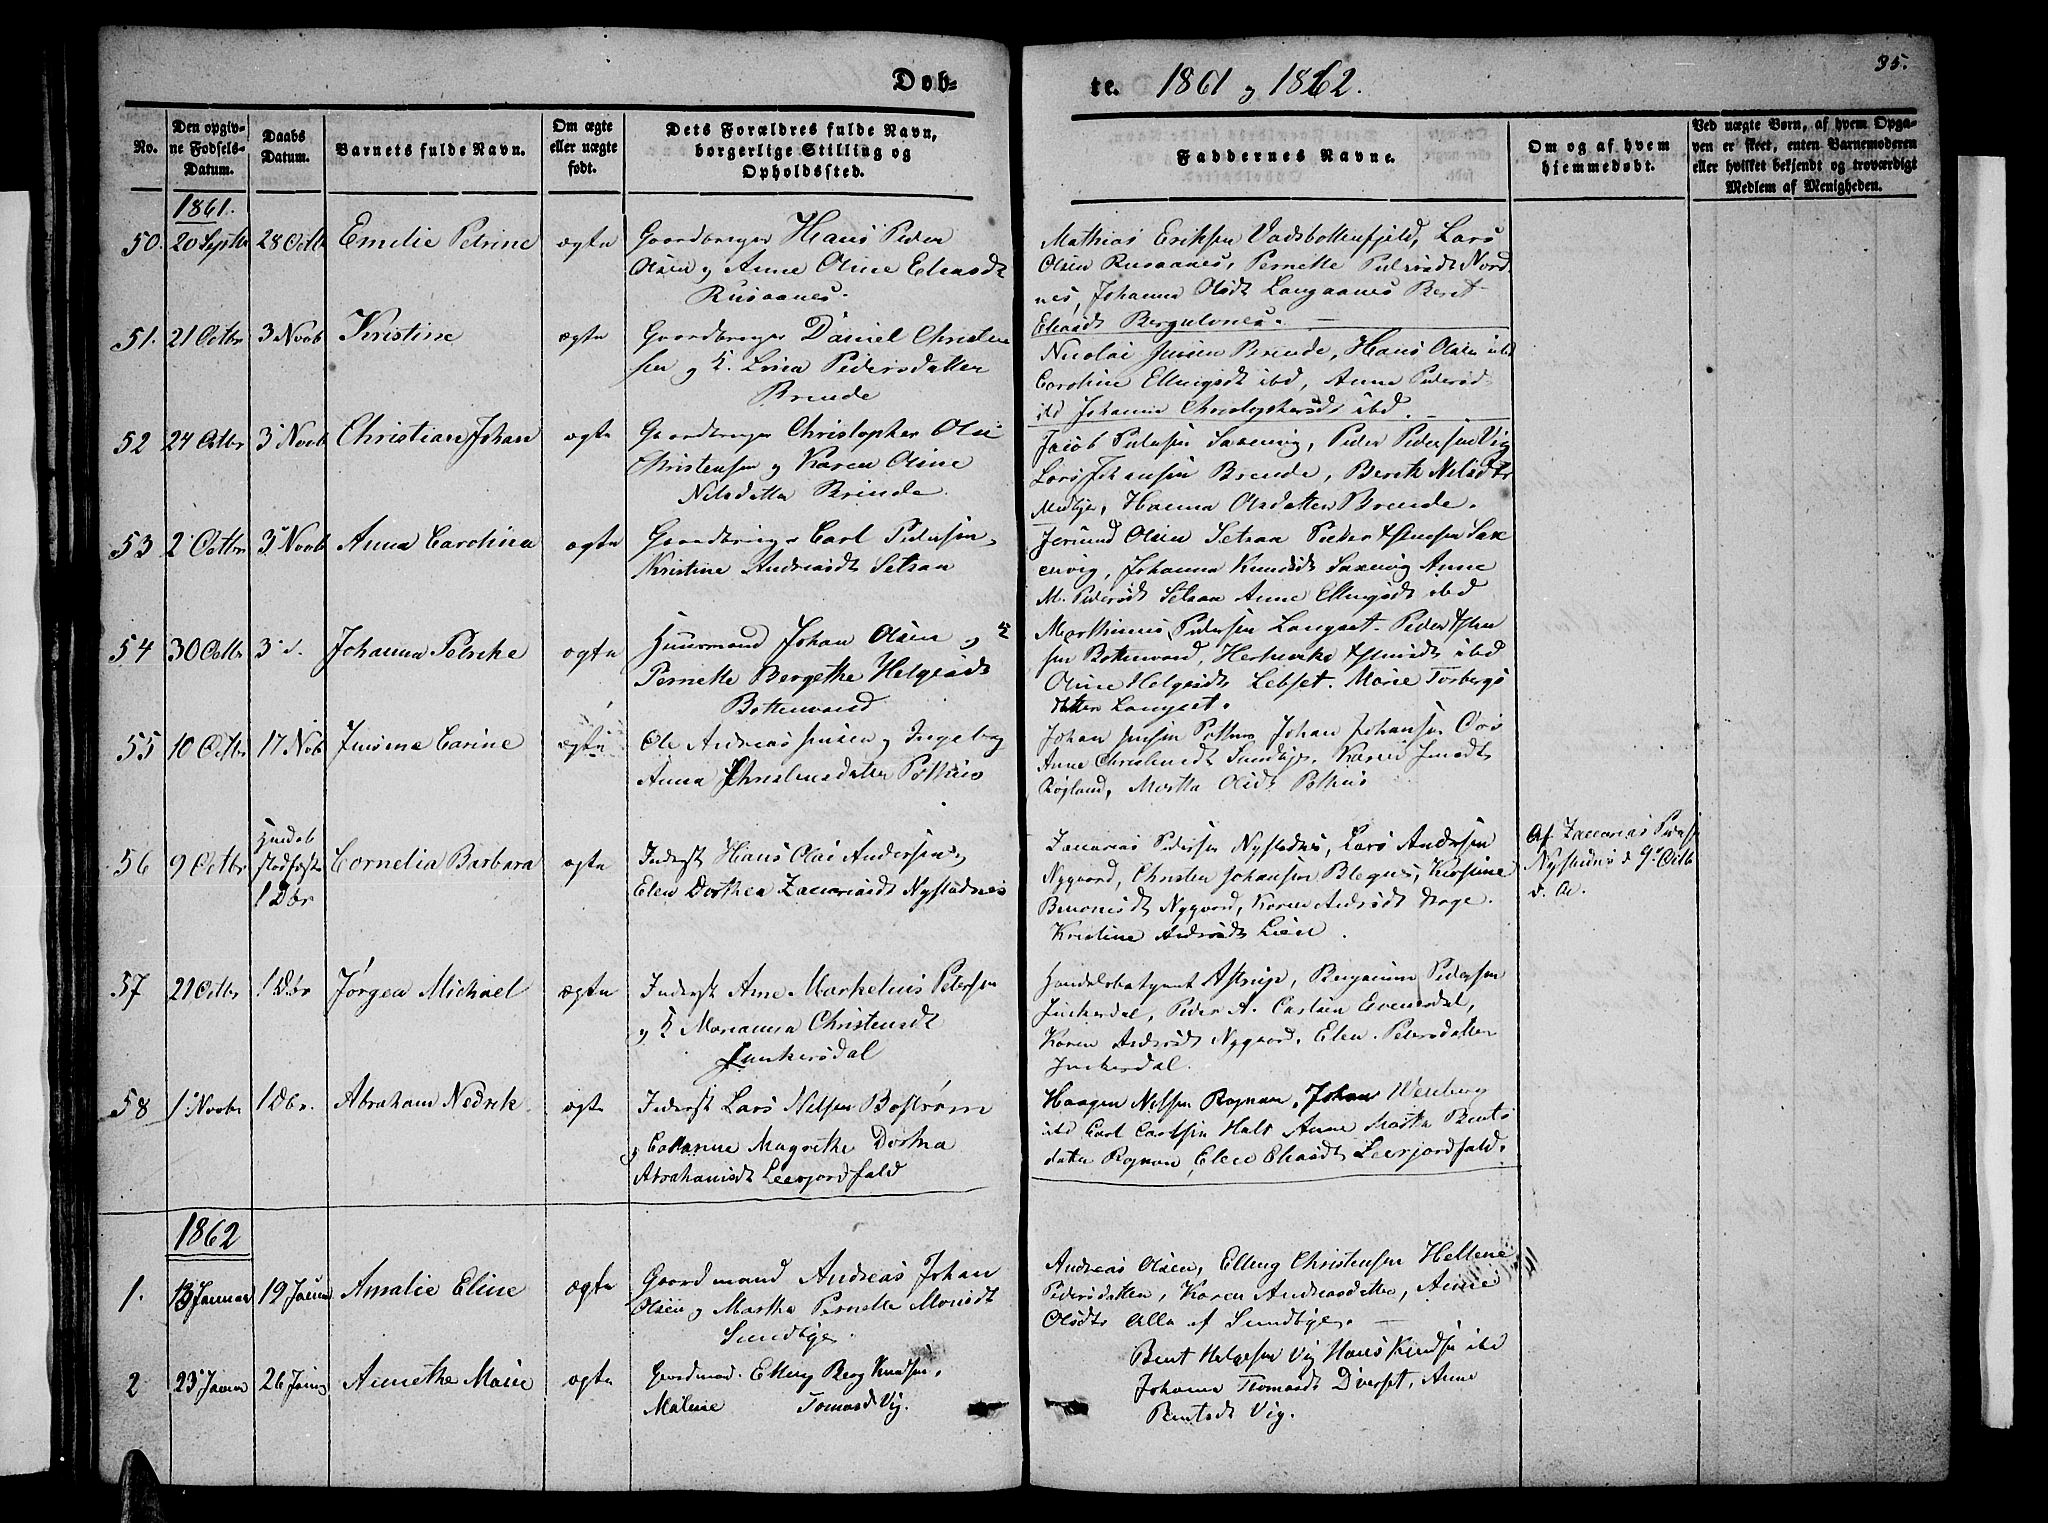 Døb-
te. 1861 og 1862.
35.
No.
Den opgiv-
ne Fødsels-
Datum.
Daabs
Datum.
Barnets fulde Navn.
Om ægte
eller uægte
født.
Dets Forældres fulde Navn,
borgerlige Stilling og
Opholdssted.
Faddernes Navne.
Om og af hvem
hjemmedøbt.
Ved uægte Børn, af hvem Opga-
ven er skeet, enten Barnemoderen
eller hvilket bekjendt og troværdigt
Medlem af Menigheden.
1861.
50. 20 Septbr 28 Octbr Emilie Petrine ægte Gaardbruger Hans Peder
Olsen og Anne Oline Eliasdt
Rusaanes.
Mathias Eriksen Vadsbottenfjeld, Lars
Olsen Rusaanes, Pernelle Pedersdt Nord-
nes, Johanna Olsdt Langaanes Beret
Eliasdt Bergulvnes.
51. 21 Octbr 3 Novb Kristine ægte Gaardbruger Daniel Christen
sen og K. Lina Pedersdatter
Brende
Nicolai Jensen Brende, Hans Olsen ibd
Caroline Ellingsdt ibd, Anne Pedersd
ibd Johanne Christophersdt ibd.
52 24 Octbr 3 Novb Christian Johan ægte Gaardbruger Christopher Olai
Christensen og Karen Oline
Nilsdatter Brende.
Jacob Pedersen Saxenvig, Peder Pedersen Vig
Lars Johansen Brende, Berith Nilsdtr
Medbye, Hanna Olsdatter Brende.
53 2 Octbr 3 Novb Anna Carolina ægte Gaardbruger Carl Pedersen
Kristine Andreasdt Setsaa
Jermund Olsen Setsaa Peder Jensen Sax
envig, Johanna Knudsdt Saxenvig Anne
M. Pedersdt Setsaa Anne Ellingsdt ibd
54 30 Octbr 3 d. Johanna Petrike ægte Huusmand Johan Olsen og K
Pernelle Bergethe Helgesdt
Bottenvand
Marthinus Pedersen Langset. Peder
sen Bottenvand, ibd
Oline Helgesdt Lebset. Marie Torbergs
datter Langset.
55 10 Octbr 17 Nob Jensine Carine ægte Ole Andreas Jensen og Ingeborg
Anna Christensdatter Pothus
Johan Jensen Pothus Johan Johansen
Anne Christensdt Sundbye, Karen Jensdt
Røgland, Martha Olsdt Pothus
56 9 Octbr
Stadfæstet
1 Dbr
Cornelia Barbara ægte Inderst Hans Olai Andersen og
Elen Dorthea Zacariasdt Nystadnes
Zacarias Pedersen Nystadnes, Lars Andersen
Nygaard, Christen Johansen , Kirstine
Benonisdt Nygaard, Karen Andersdt Hage.
Kristine Andersdt Lien.
Af Zacarias Peders
Nystadnes d 9 Octb
57 21 Octbr 1 Dbr Jørgen Michael ægte Inderst Arne Markelius Petersen
og K Marianna Christensdt
Junkersdal
Handelsbetjent Astrup, Benjamin Pedersen
Junkerdal, Peder A. Carlsen Evensdal,
Karen Andersdt Nygaard, Elen Petersdatter
Junkerdal.
58 1 Novbr 1 Dbr. Abraham Nedrik ægte Inderst Lars Nilsen Bostrøm
og Catarine Magrethe Dortea
Abrahamsdt Leerjordfald
Haagen Nilsen Rognan, Johan Wenberg
ibd Carl Carlsen Hals Anne Martha Bents
datter Rognan, Elen Eliasdt Leerjordfald.
1862
1. 13 Januar 19 Januar Amalie Eline ægte Gaardmand Andreas Johan
Olsen og Martha Pernelle Monsdt
Sundbye.
Andreas Olsen, Elling Christensen Hellene
Pedersdatter, Karen Andreasdatter, Anne
Olsdtr Alle af Sundbye.
2 23 Januar 26 Januar Annethe Marie ægte Gaardmand. Elling Berg Knudsen,
Malene Tomasdt Vig.
Bent Helgesen Vig Hans Knudsen ibd
Johanna Thomasdt Dverset, Anne
Bentsdt Vig.